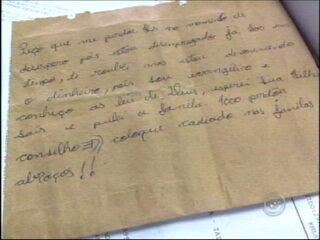 Peço que me perdoe fis no momento de
desespero pois estou desempregado fa
tempo, te roubei nos estou devolvendo
o dinheiro, pois sou evangelico e
conheço as lei de Deus, esperei sua filha
sair e pulei a janela 1000 perdão
conselho ⇒ coloque cadiado nas janelas
abraços!!